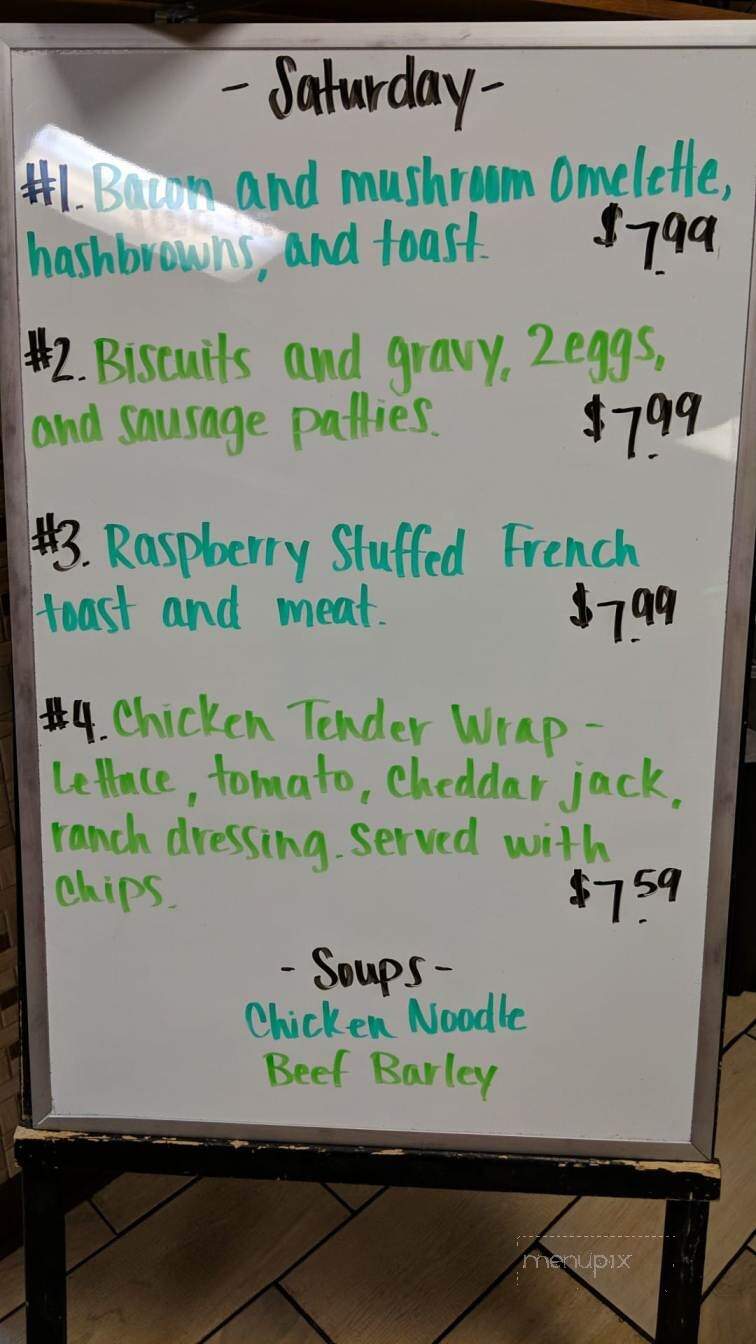 - Saturday -
#1. Bacon and mushroom Omelette,
hashbrowns, and toast. $7.99
#2. Biscuits and gravy, 2eggs,
and sausage patties. $7.99
#3. Raspberry Stuffed French
toast and meat. $7.99
#4. Chicken Tender Wrap -
Lettuce, tomato, Cheddar jack,
ranch dressing. Served with
Chips. $7.59
- Soups -
Chicken Noodle
Beef Barley
menupix